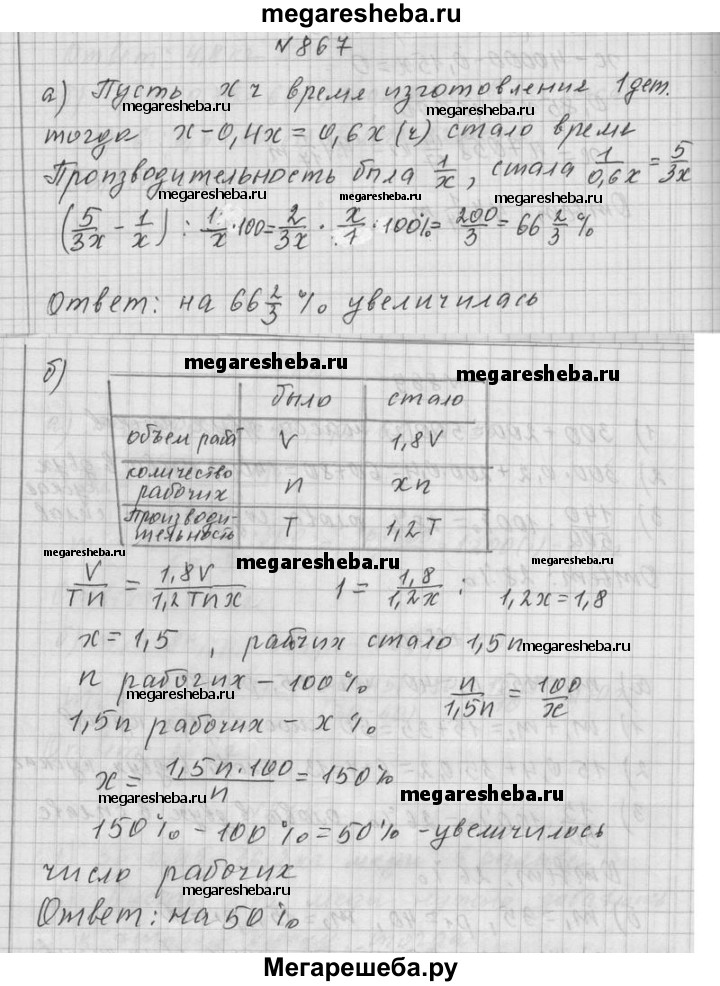 megaresheba.ru
N867
а) Пусть x ч время изготовления 1 дет.
megaresheba.ru megaresheba.ru
тогда x-0,4x=0,6x (ч) стало время
Производительность была 1/x, стала 1/0,6x = 5/3x
megaresheba.ru megaresheba.ru megaresheba.ru
(5/3x - 1/x) : 1/x · 100 = 2/3x · x/1 · 100% = 200/3 = 66 2/3 %
Ответ: на 66 2/3 % увеличилась
megaresheba.ru megaresheba.ru
б)
было стало
объем работ V 1,8V
количество рабочих n xn
производительность T 1,2T
megaresheba.ru megaresheba.ru
V/Tn = 1,8V/1,2Tnx 1 = 1,8/1,2x ; 1,2x=1,8
x=1,5 , рабчих стало 1,5n
megaresheba.ru
n рабочих - 100% n/1,5n = 100/x
megaresheba.ru
1,5n рабочих - x%
x = 1,5n·100/n = 150%
megaresheba.ru megaresheba.ru
150% - 100% = 50% - увеличилось
число рабочих
megaresheba.ru megaresheba.ru
Ответ: на 50%
Мегарешеба.ру